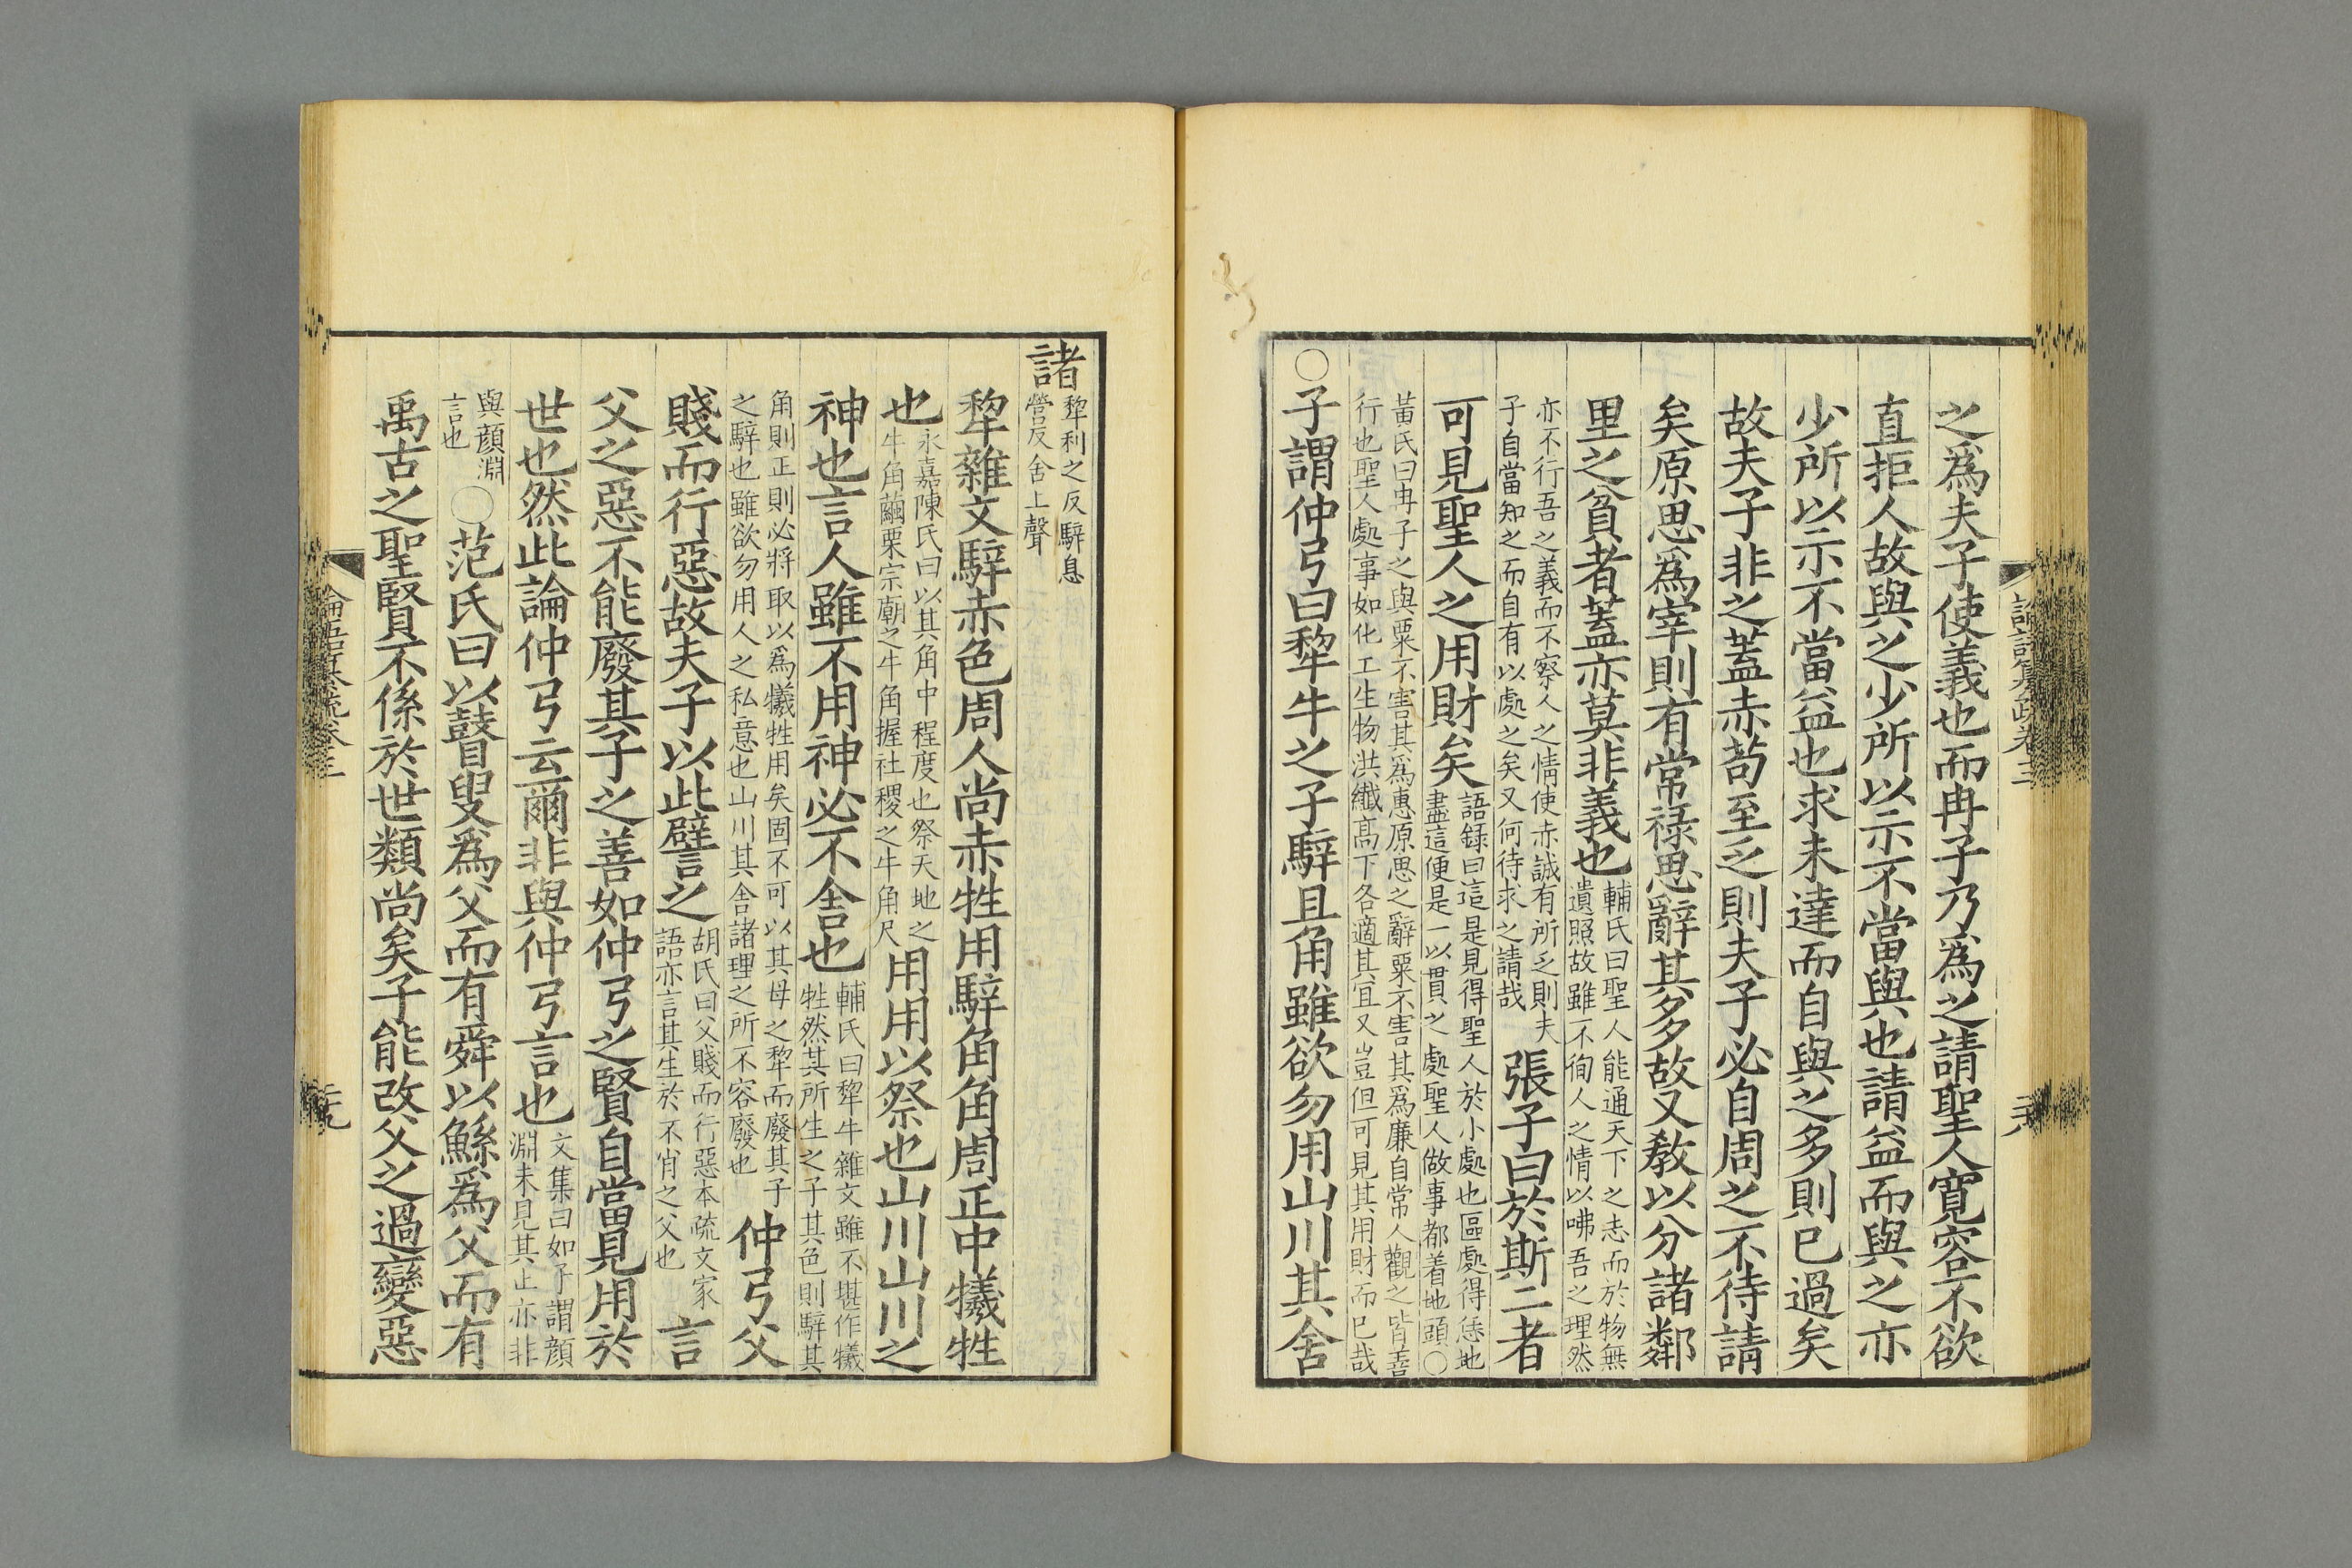 之爲夫子使義也而冉子乃爲之請聖人寛容不欲
直拒人故與之少所以示不當與也請益而與之亦
少所以示不當益也求未達而自與之多則已過矣
故夫子非之蓋赤苟至乏則夫子必自周之不待請
矣原思爲宰則有常祿思辭其多故又敎以分諸鄰
里之貧者蓋亦莫非義也
輔氏曰聖人能通天下之志而於物無
遺照故雖不徇人之情以咈吾之理然
亦不行吾之義而不察人之情使赤誠有所乏則夫
子自當知之而自有以處之矣又何待求之請哉
張子曰於斯二者
可見聖人之用財矣
語録曰這是見得聖人於小處也區處得恁地
盡這便是一以貫之處聖人做事都着地頭○
黃氏曰冉子之與粟不害其爲惠原思之辭粟不害其爲廉自常人觀之皆善
行也聖人處事如化工生物洪纖高下各適其宜又豈但可見其用財而已哉
○子謂仲弓曰犂牛之子騂且角雖欲勿用山川其舍
諸
犂利之反騂息
營反舍上聲
犂雜文騂赤色周人尚赤牲用騂角角周正中犠牲
也
永嘉陳氏曰以其角中程度也祭天地之
牛角繭栗宗廟之牛角握社稷之牛角尺
用用以祭也山川山川之
神也言人雖不用神必不舍也
輔氏曰犂牛雜文雖不堪作犠
牲然其所生之子其色則騂其
角則正則必將取以爲犠牲用矣固不可以其母之犂而廢其子
之騂也雖欲勿用人之私意也山川其舍諸理之所不容廢也
仲弓父
賤而行惡故夫子以此譬之
胡氏曰父賤而行惡本疏文家
語亦言其生於不肖之父也
言
父之惡不能廢其子之善如仲弓之賢自當見用於
世也然此論仲弓云爾非與仲弓言也
文集曰如子謂顔
淵未見其止亦非
與顔淵
言也
○范氏曰以瞽叟爲父而有舜以鯀爲父而有
禹古之聖賢不係於世類尚矣子能改父之過變惡